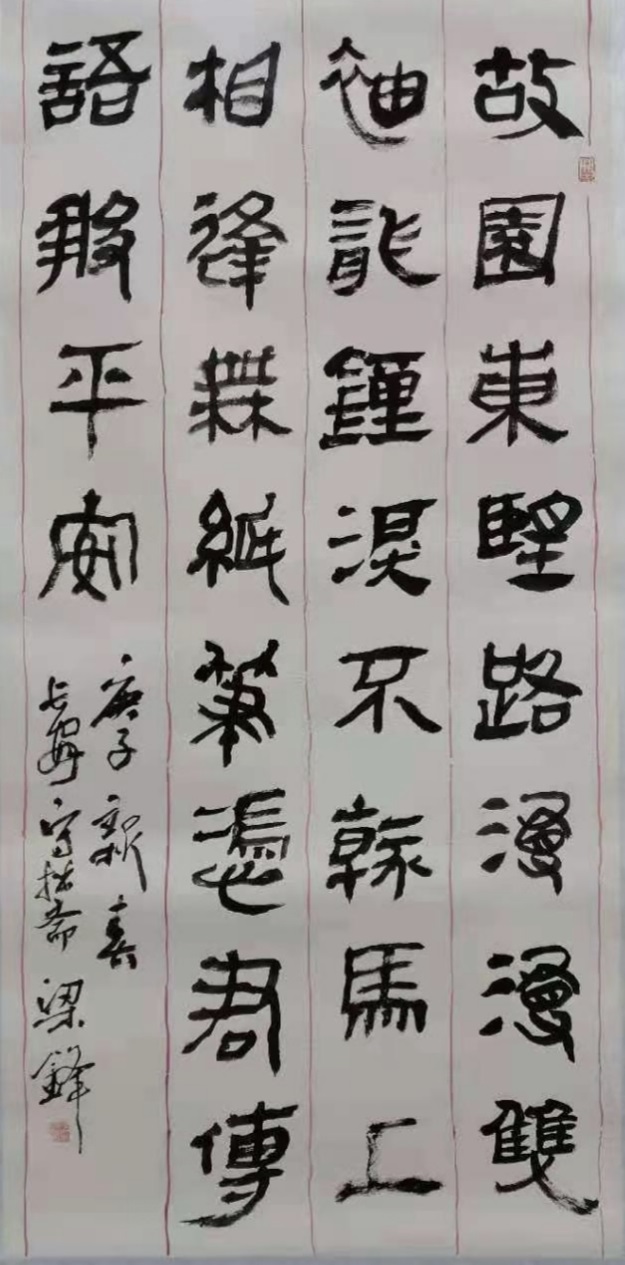 故園東朢路漫漫雙
袖龍鍾淚不乾馬上
相逢無紙筆憑君傳
語報平安
庚子新春
长安守拙斋梁鋒